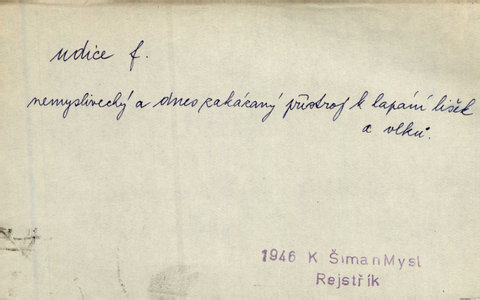 udice f.
nemyslivecký a dnes zakázaný přístroj k lapání lišek
a vlků.
1946 K ŠimanMysl
Rejstřík